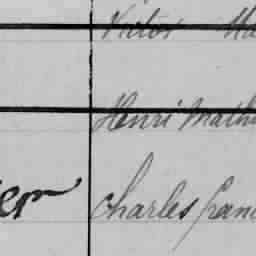 Victor Ma
Henri Math
er Charles